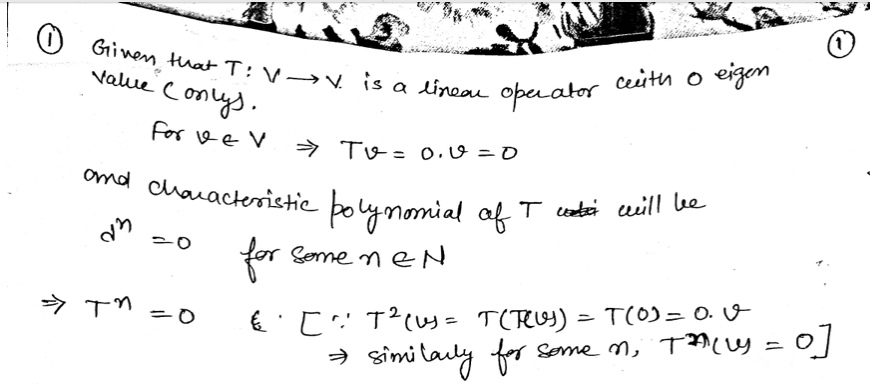 ① ①
Given that T: V → V. is a linear operator with 0 eigen
value (only).
For v ∈ V ⇒ Tv = 0.v = 0
and characteristic polynomial of T will be
d^n = 0 for some n ∈ N
⇒ T^n = 0 [∵ T²(v) = T(T(v)) = T(0) = 0. v
⇒ similarly for some n, T^n(v) = 0]